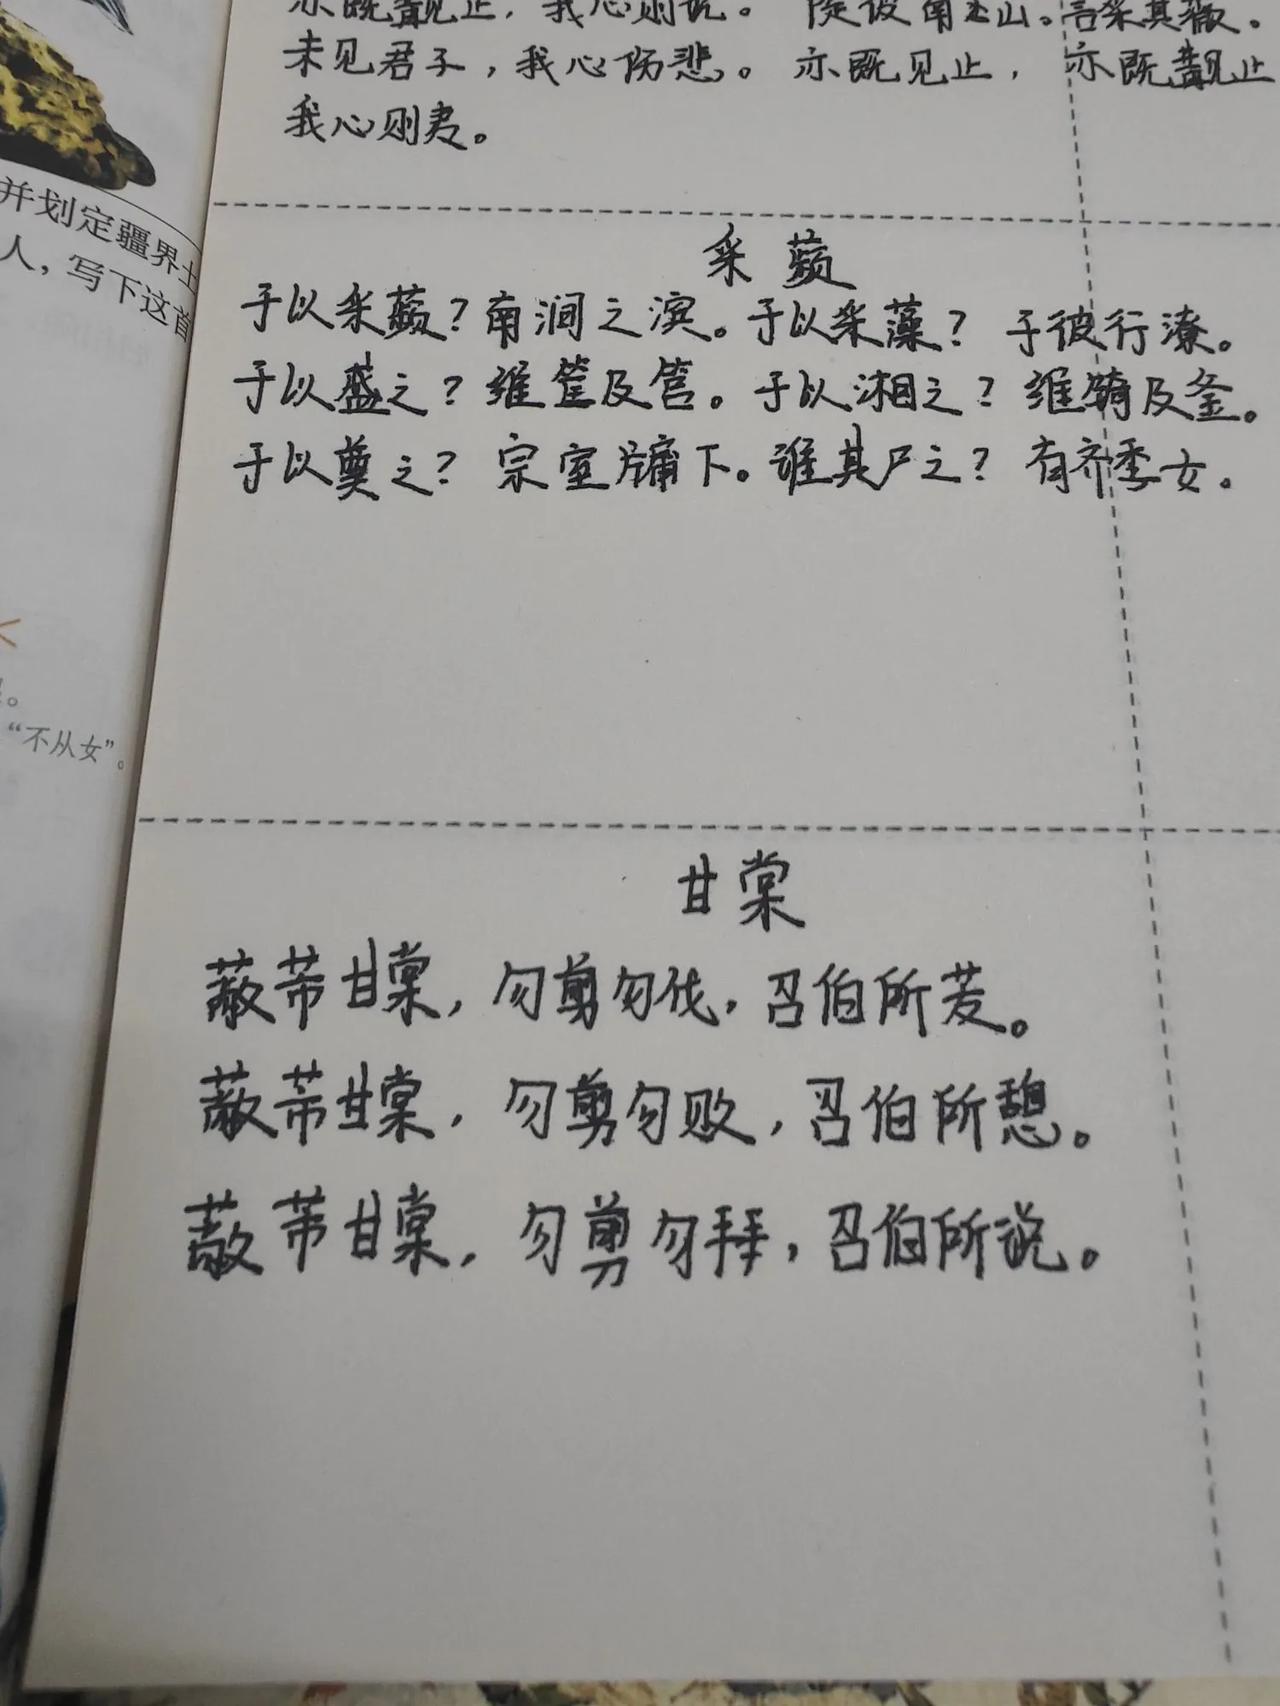 亦既觏止，我心则说。陟彼南山。言采其薇。
未见君子，我心伤悲。亦既见止，亦既觏止
我心则夷。
并划定疆界土
人，写下这首
采蘋
于以采蘋？南涧之滨。于以采藻？于彼行潦。
于以盛之？维筐及筥。于以湘之？维锜及釜。
于以奠之？宗室牖下。谁其尸之？有齐季女。
“不从女”。
甘棠
蔽芾甘棠，勿剪勿伐，召伯所茇。
蔽芾甘棠，勿剪勿败，召伯所憩。
蔽芾甘棠，勿剪勿拜，召伯所说。